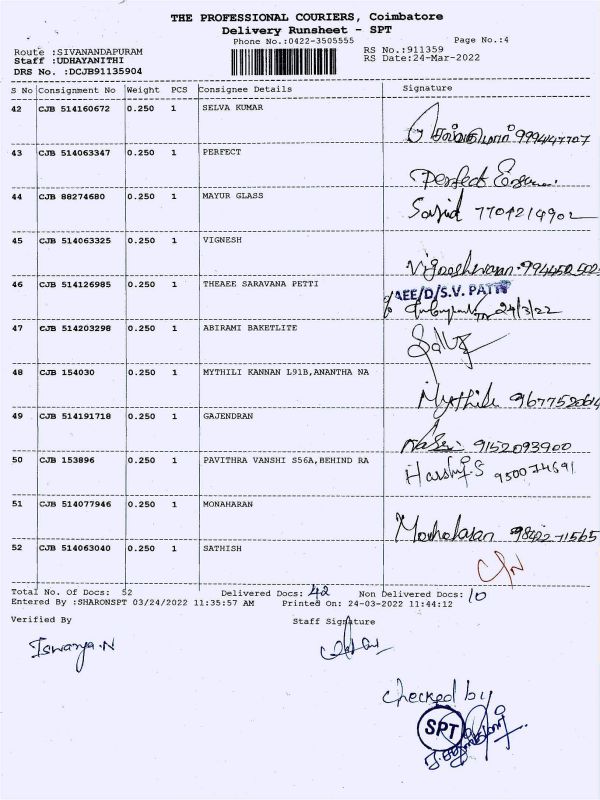 THE PROFESSIONAL COURIERS, Coimbatore
Delivery Runsheet - SPT
Phone No.:0422-3505555 Page No.:4
Route :SIVANANDAPURAM RS No.:911359
Staff :UDHAYANITHI RS Date:24-Mar-2022
DRS No. :DCJB91135904
S No Consignment No Weight PCS Consignee Details Signature
42 CJB 514160672 0.250 1 SELVA KUMAR
43 CJB 514063347 0.250 1 PERFECT
Perfect
44 CJB 88274680 0.250 1 MAYUR GLASS
Sajid 7701214902
45 CJB 514063325 0.250 1 VIGNESH
Vigneshwaran
46 CJB 514126985 0.250 1 THEAEE SARAVANA PETTI
AEE/D/S.V. PATTI
24/3/22
47 CJB 514203298 0.250 1 ABIRAMI BAKETLITE
48 CJB 154030 0.250 1 MYTHILI KANNAN L91B,ANANTHA NA
Mythili
49 CJB 514191718 0.250 1 GAJENDRAN
9152093900
50 CJB 153896 0.250 1 PAVITHRA VANSHI S56A,BEHIND RA
51 CJB 514077946 0.250 1 MONAHARAN
52 CJB 514063040 0.250 1 SATHISH
C/N
Total No. Of Docs: 52 Delivered Docs: 42 Non Delivered Docs: 10
Entered By :SHARONSPT 03/24/2022 11:35:57 AM Printed On: 24-03-2022 11:44:12
Verified By Staff Signature
Iswarya.N
checked by
SPT